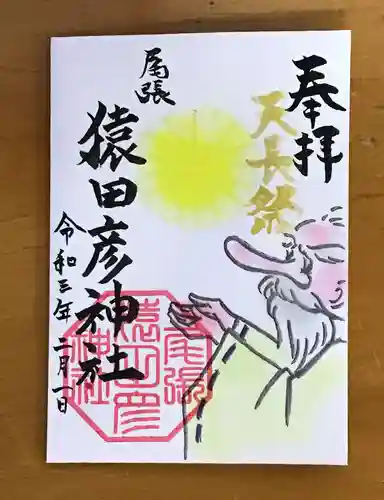 奉拝
天長祭
尾張
猿田彦神社
令和三年二月一日
尾張
猿田彦
神社